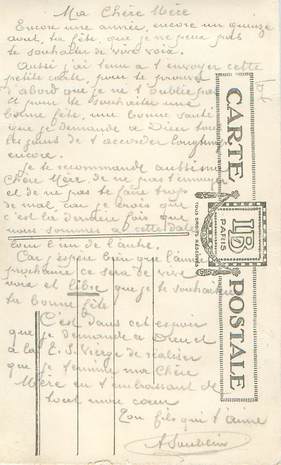 Ma Chère Mère
Encore une année, encore un quinze
aout, ta fête, que je ne peux pas
te souhaiter de vive voix.
Aussi j'ai tenu a t'envoyer cette
petite carte, pour te prouver
d'abord que je ne t'oublie pas
et pour te souhaiter une
bonne fête, une bonne santé
que je demande a Dieu tous
les jours de t'accorder longtemps
encore.
Je te recommande aussi ma
Chère Mère de ne pas t'ennuyer
et de ne pas te faire trop
de mal car je crois que
c'est la dernière fois que
nous sommes a cette date
loin l'un de l'autre.
Car j'espère bien que l'année
prochaine ce sera de vive
voix et libre que je te souhaiterai
ta bonne fête
C'est dans cet espoir
que je demande a Dieu et
a la T. S. Vierge de réaliser
que je termine ma Chère
Mère en t'embrassant de
tout mon cœur
Ton fils qui t'aime
CARTE POSTALE
PARIS